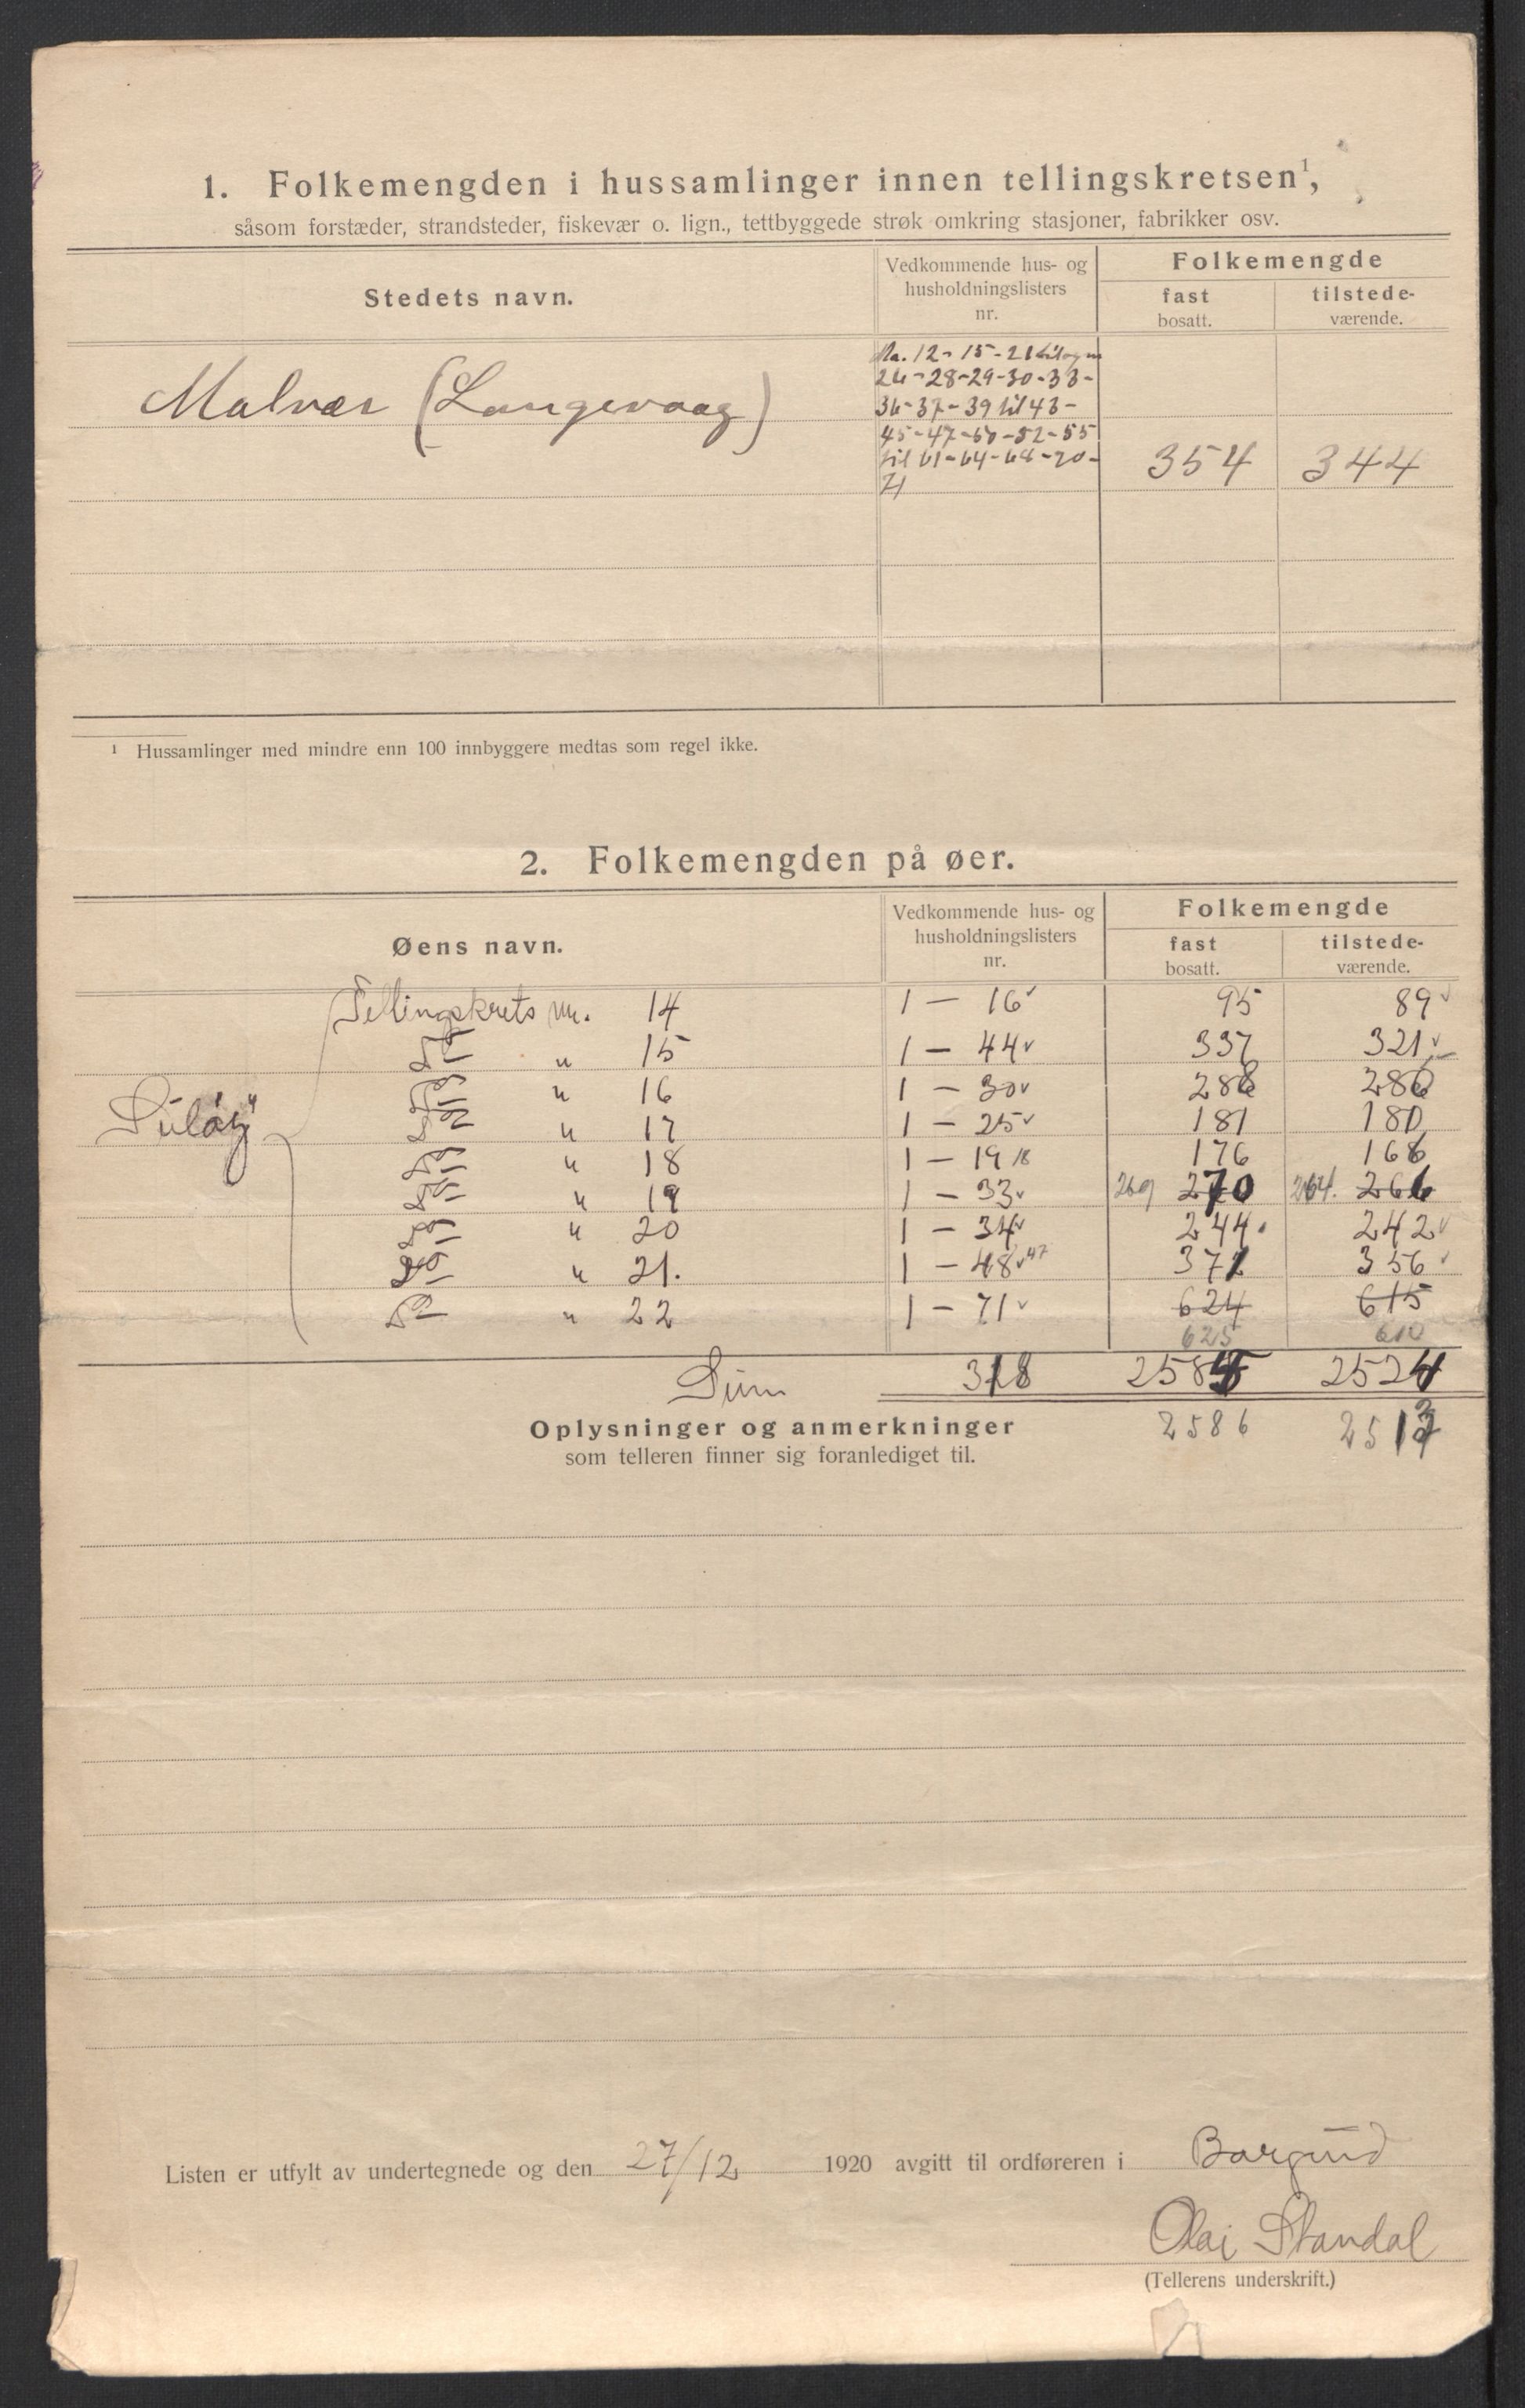 1. Folkemengden i hussamlinger innen tellingskretsen¹,
såsom forstæder, strandsteder, fiskevær o. lign., tettbyggede strøk omkring stasjoner, fabrikker osv.
Stedets navn. Vedkommende hus- og husholdningslisters nr. Folkemengde
fast bosatt. tilstede-værende.
Na. 12 - 15 - 21 til og m
24 - 28 - 29 - 30 - 33 -
Malvær (Langevaag) 36 - 37 - 39 til 43 -
45 - 47 - 50 - 52 - 55
til 61 - 64 - 68 - 70 - 354 344
71
¹ Hussamlinger med mindre enn 100 innbyggere medtas som regel ikke.
2. Folkemengden på øer.
Øens navn. Vedkommende hus- og husholdningslisters nr. Folkemengde
fast bosatt. tilstede-værende.
Tellingskrets nr. 14 1 — 16 95 89
Do " 15 1 — 44 337 321
Do " 16 1 — 30 286 280
Suløy Do " 17 1 — 25 181 180
Do " 18 1 — 19 18 176 168
Do " 19 1 — 33 269 270 264. 266
Do " 20 1 — 34 244 242
Do " 21. 1 — 48 47 372 356
Do " 22 1 — 71 624 615
625 610
Sum 318 2585 2524
Oplysninger og anmerkninger 2586 2513
som telleren finner sig foranlediget til.
Listen er utfylt av undertegnede og den 27/12 1920 avgitt til ordføreren i Borgund
Olai Standal
(Tellerens underskrift.)